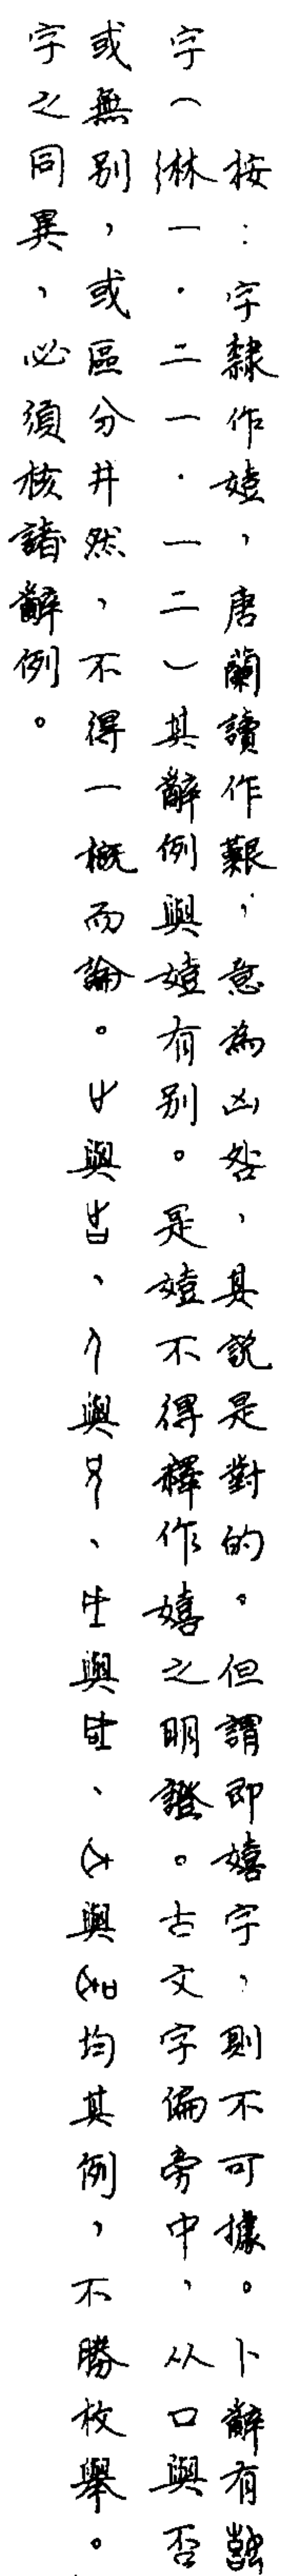 按：字隸作嬄，唐蘭讀作艱，意為凶咎，其說是對的。但謂即嬉字，則不可據。卜辭有
字（㳭一·二一·一二）其辭例與有別。是不得釋作嬉之明證。古文字偏旁中，从口與否
或無別，或區分井然，不得一概而論。與、與、與、與均其例，不勝枚舉。
字之同異，必須核諸辭例。